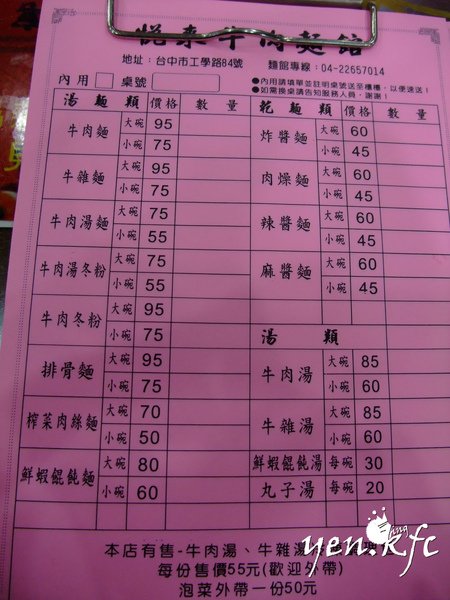 悅來牛肉麵館
地址：台中市工學路84號 麵館專線：04-22657014
內用 桌號
●內用請填單並註明桌號送至櫃檯，以便速送！
●如需換桌請告知服務人員，謝謝！
湯麵類 價格 數量
牛肉麵 大碗 95
小碗 75
牛雜麵 大碗 95
小碗 75
牛肉湯麵 大碗 75
小碗 55
牛肉湯冬粉 大碗 75
小碗 55
牛肉冬粉 大碗 95
小碗 75
排骨麵 大碗 95
小碗 75
榨菜肉絲麵 大碗 70
小碗 50
鮮蝦餛飩麵 大碗 80
小碗 60
乾麵類 價格 數量
炸醬麵 大碗 60
小碗 45
肉燥麵 大碗 60
小碗 45
辣醬麵 大碗 60
小碗 45
麻醬麵 大碗 60
小碗 45
湯類
牛肉湯 大碗 85
小碗 60
牛雜湯 大碗 85
小碗 60
鮮蝦餛飩湯 每碗 30
丸子湯 每碗 20
本店有售-牛肉湯、牛雜湯
每份售價55元(歡迎外帶)
泡菜外帶一份50元
yen.kfc